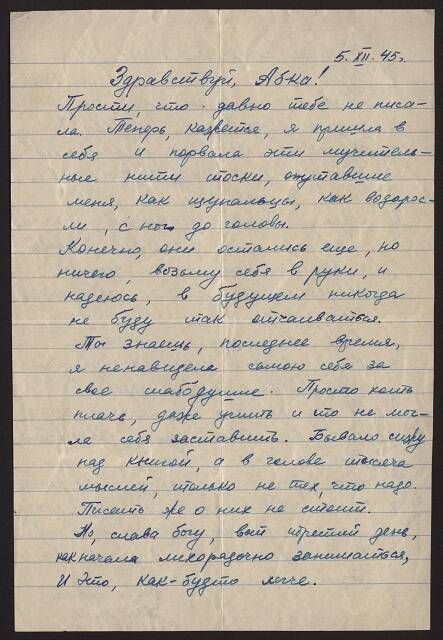 5. XII. 45г.
Здравствуй, Абка!
Прости, что давно тебе не писа-
ла. Теперь, кажется, я пришла в
себя и порвала эти мучитель-
ные нити тоски, опутавшие
меня, как щупальцы, как водорос-
ли, с ног до головы.
Конечно, они остались еще, но
ничего, возьму себя в руки, и
надеюсь, в будущем никогда
не буду так отчаиваться.
Ты знаешь, последнее время,
я ненавидела самою себя за
свое слабодушие. Просто хоть
плачь, даже учить и то не мог-
ла себя заставить. Бывало сижу
над книгой, а в голове тысяча
мыслей, и только не тех, что надо.
Писать же о них не стоит.
Но, слава богу, вот третий день,
как начала лихорадочно заниматься,
И это, как-будто легче.